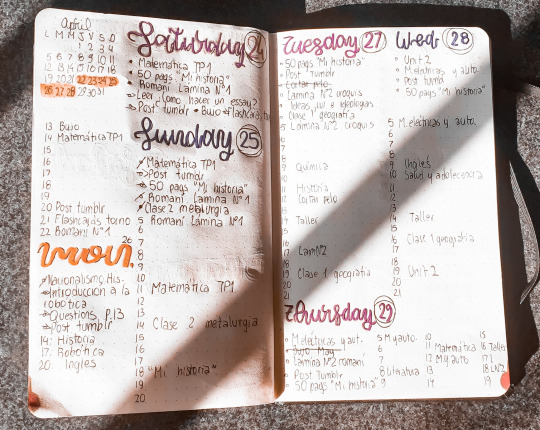 April
L M M J V S D
1 2 3 4
5 6 7 8 9 10 11
12 13 14 15 16 17 18
19 20 21 22 23 24 25
26 27 28 29 30 31
13 Bujo
14 Matemática TP1
15
16
17
18
19
20 Post tumblr
21 Flashcards torno
22 Romaní N°1
26
Nacionalismo His.
Introducción a la
robótica
Questions, P.13
Post tumblr
14 Historia
17 Robótica
20 Inglés
Saturday 24
Matemática TP1
50 pags "Mi historia"
Romaní Lámina N°1
Leer "Como hacer un essay?"
Post tumblr • Bujo • Flashcards torno
Sunday 25
Matemática TP1
Post tumblr
50 pags "Mi historia"
Romaní Lámina N°1
Clase 2 metalurgia
5 Romaní Lámina N°1
6
7
8
9
10
11 Matemática TP1
12
13
14 Clase 2 metalurgia
15
16
17
18 "Mi historia"
19
20
Tuesday 27
50 pags "Mi historia"
Post tumblr
Cortar pelo
Lámina N°2 croquis
Ideas, lu e ideologías
Clase 1 geografía
5 Lámina N°2 croquis
6
7
8
9 Química
10
11 Historia
12 Cortar pelo
13
14 Taller
15
16
17 Lam N°2
18
19 Clase 1 geografía
20
21
Wed 28
Unit 2
M.eléctricas y auto.
Post tumblr
50 pags "Mi historia"
5 M.eléctricas y auto.
6
7
8
9 Inglés
10 Salud y adolescencia
11
12
13
14 Taller
15
16
17 Clase 1 geografía
18
19 Unit 2
20
21
Thursday 29
M.eléctricas y aut.
Bujo May
Lámina N°2 romaní
Post Tumblr
50 pags "Mi historia"
5 M y auto.
6
7
8 Literatura
9
10
11 Matemática
12 M y auto
13
14
15
16 Taller
17
18 LN°2
19